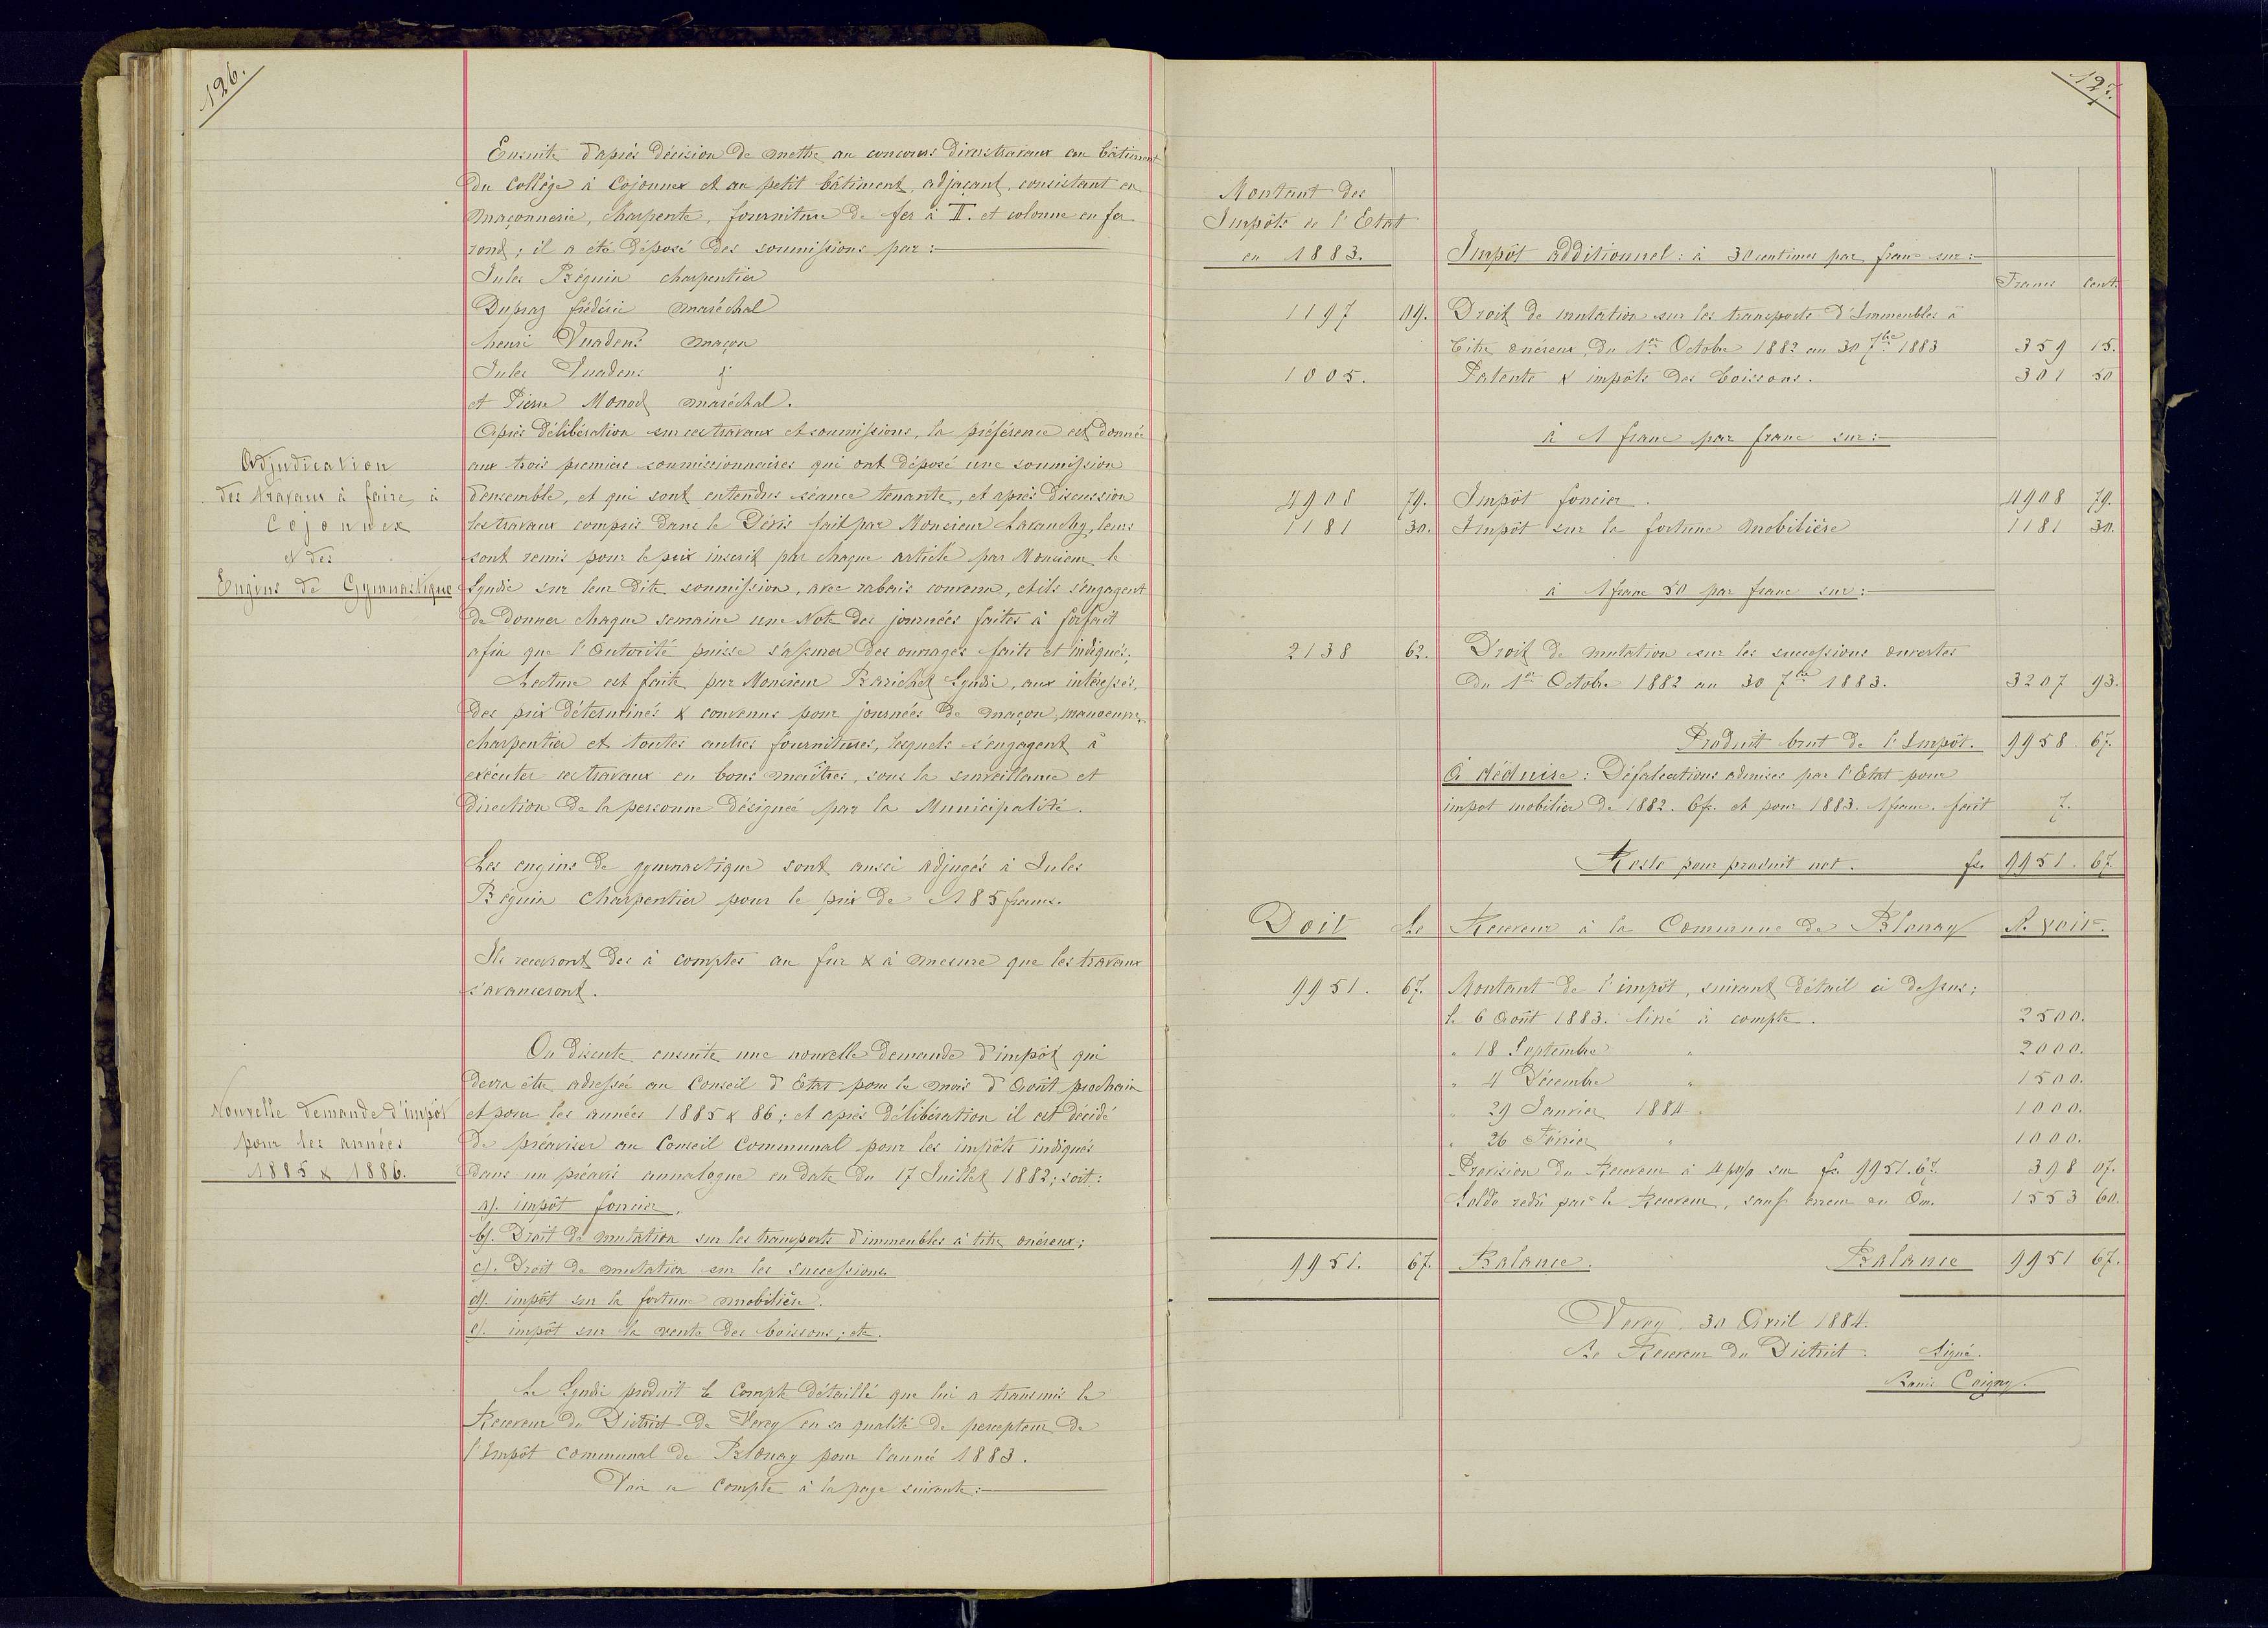 126.
Ensuite d'après décision de mettre au concours divers travaux au bâtiment
du Collège à Cojonnex et au petit bâtiment, adjaçant, consistant en
maçonnerie, charpente, fourniture de fer à T. et colonne en fer
rond; il a été déposé des soumissions par:
Jules Béguin charpentier
Dupraz frédéric maréchal
henri Vuadens maçon
Jules Vuadens d°
et Pierre Monod maréchal.
Après délibération sur ces travaux et soumissions, la préférence est donnée
Adjudication
aux trois premiers soumissionnaires qui ont déposé une soumission
des travaux à faire à
d'ensemble, et qui sont entendus séance tenante, et après discussion
Cojonnex
les travaux compris dans le Devis fait par Monsieur Lavanchy, leurs
& des
sont remis pour le prix inscrit par chaque article par Monsieur le
Engins de Gymnastique
Syndic sur leur dite soumission, avec rabais convenu, et ils s'engagent
de donner chaque semaine une Note des journées faites à forfait
afin que l'Autorité puisse s'assurer des ouvrages faits et indiqués;
Lecture est faite par Monsieur Bärichet Syndic, aux intéressés,
des prix déterminés & convenus pour journées de maçon, manoeuvre,
charpentier et toutes autres fournitures, lesquels s'engagent à
exécuter ces travaux en bons maîtres, sous la surveillance et
direction de la personne désignée par la Municipalité.
Les engins de gymnastique sont aussi adjugés à Jules
Béguin charpentier pour le prix de 185 francs.
Ils recevront des à comptes au fur & à mesure que les travaux
s'avanceront.
On discute ensuite une nouvelle demande d'impôt qui
devra être adressée au Conseil d'Etat pour le mois d'Août prochain
Nouvelle demande d'impôt
et pour les années 1885 & 86; et après délibération il est décidé
pour les années
de préaviser au Conseil Communal pour les impôts indiqués
1885 & 1886.
dans un préavis annalogue en date du 17 Juillet 1882; soit:
a). impôt foncier.
b). Droit de mutation sur les transports d'immeubles à titre onéreux;
c). Droit de mutation sur les successions
d). impôt sur la fortune mobilière.
e). impôt sur la vente des boissons; etc.
Le Syndic produit le Compte détaillé que lui a transmis le
Receveur du District de Vevey en sa qualité de percepteur de
l'Impôt communal de Blonay pour l'année 1883.
Voir ce compte à la page suivante:
127.
Montant des
Impôts de l'Etat
en 1883.
Impôt additionnel: à 30 centimes par franc sur:
Francs Cent.
1197 19. Droit de mutation sur les transports d'Immeubles à
titre onéreux, du 1er Octobre 1882 au 30 7bre 1883 359 15.
1005. Patente & impôts des boissons. 301 50
à 1 franc par franc sur:
4908 79. Impôt foncier. 4908 79.
1181 30. Impôt sur la fortune mobilière 1181 30.
à 1 franc 50 par franc sur:
2138 62. Droit de mutation sur les successions ouvertes
du 1er Octobre 1882 au 30 7bre 1883. 3207 93.
Produit brut de l'Impôt. 9958. 67.
A déduire: Défalcations admises par l'Etat pour
impot mobilier de 1882. 6 fr. et pour 1883. 1 franc. fait 7.
Reste pour produit net. fr. 9951. 67
Doit Le Receveur à la Commune de Blonay Avoir.
9951. 67. Montant de l'impôt, suivant détail ci dessus;
le 6 Août 1883. livré à compte. 2500.
" 18 Septembre " 2000.
" 4 Décembre " 1500.
" 29 Janvier 1884. 1000.
" 26 Février " 1000.
Provision du Receveur à 4 p% sur fr. 9951.67. 398 07.
Solde redû par le Receveur, sauf erreur ou Om. 1553 60.
9951. 67. Balance. Balance 9951 67.
Vevey, 30 Avril 1884.
Le Receveur du District. Signé.